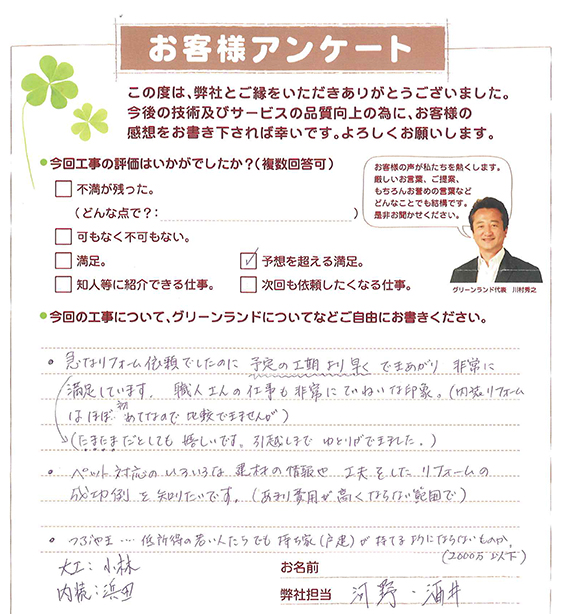 お客様アンケート
この度は、弊社とご縁をいただきありがとうございました。
今後の技術及びサービスの品質向上の為に、お客様の
感想をお書き下されば幸いです。よろしくお願いします。
今回工事の評価はいかがでしたか？(複数回答可)
不満が残った。
(どんな点で？: )
可もなく不可もない。
満足。
予想を超える満足。
知人等に紹介できる仕事。
次回も依頼したくなる仕事。
お客様の声が私たちを熱くします。
厳しいお言葉、ご提案、
もちろんお誉めの言葉など
どんなことでも結構です。
是非お聞かせください。
グリーンランド代表 川村秀之
今回の工事について、グリーンランドについてなどご自由にお書きください。
・急なリフォーム依頼でしたのに 予定の工期より早く できあがり 非常に
満足しています。 職人さんの仕事も非常にていねいな印象。(内装リフォーム
はほぼ初めてなので比較できませんが)
(たまたまだとしても 嬉しいです。引越しまで ゆとりができました。)
・ペット対応のいろいろな 建材の情報や 工夫をした リフォームの
成功例を知りたいです。(あまり費用が高くならない範囲で)
・つぶやき… 低所得の若い人たちでも 持ち家(戸建)が 持てるようにならないものか。
(2000万以下)
大工: 小林
内装: 浜田
お名前
弊社担当 河野・酒井